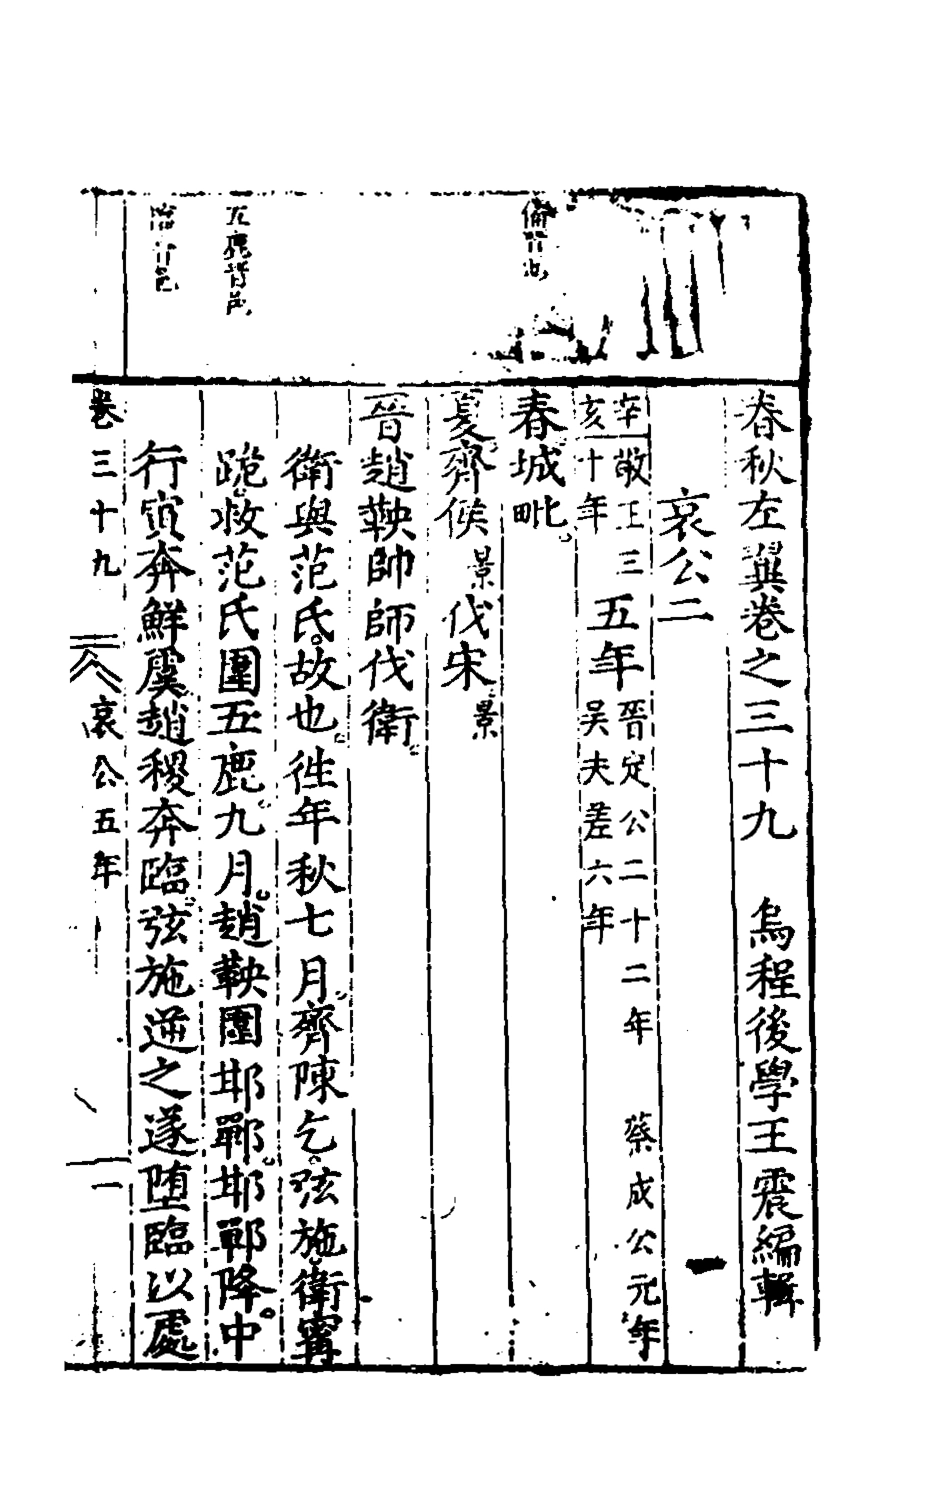 春秋左翼卷之三十九　烏程後學王震編輯
哀公二
辛亥
敬王三十年
五年
晉定公二十二年　蔡成公元年
吳夫差六年
春城毗
夏齊侯景伐宋景
晉趙鞅帥師伐衛
衛與范氏故也往年秋七月齊陳乞弦施衛甯
跪救范氏圍五鹿九月趙鞅圍邯鄲邯鄲降中
行寅奔鮮虞趙稷奔臨弦施逆之遂墮臨以處
備晉也
五鹿晉邑
臨晉邑
卷三十九　哀公五年　一